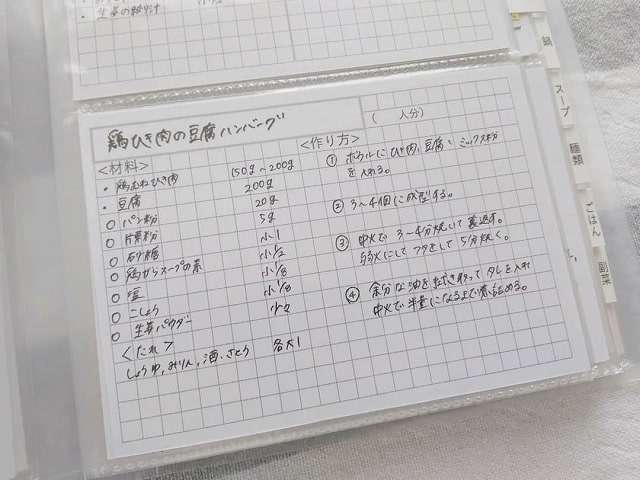 ・生姜の絞り汁
鶏ひき肉の豆腐ハンバーグ
(　　人分)
<材料>
・鶏むねひき肉　150g~200g
・豆腐　200g
○ パン粉　20g
○ 片栗粉　5g
○ 砂糖　小1
○ 鶏がらスープの素　小1/2
○ 塩　小1/8
○ こしょう　小1/8
○ 生姜パウダー　小2
<たれ>
しょうゆ,みりん,酒,さとう　各大1
<作り方>
① ボウルにひき肉、豆腐、ミックス粉
を入れる。
② 3~4個に成型する。
③ 中火で3~4分焼いて裏返す。
弱火にしてフタをして5分焼く。
④ 余分な油をふき取って、タレを入れ
中火で半量になるまで煮詰める。
鍋
スープ
麺類
ごはん
副菜